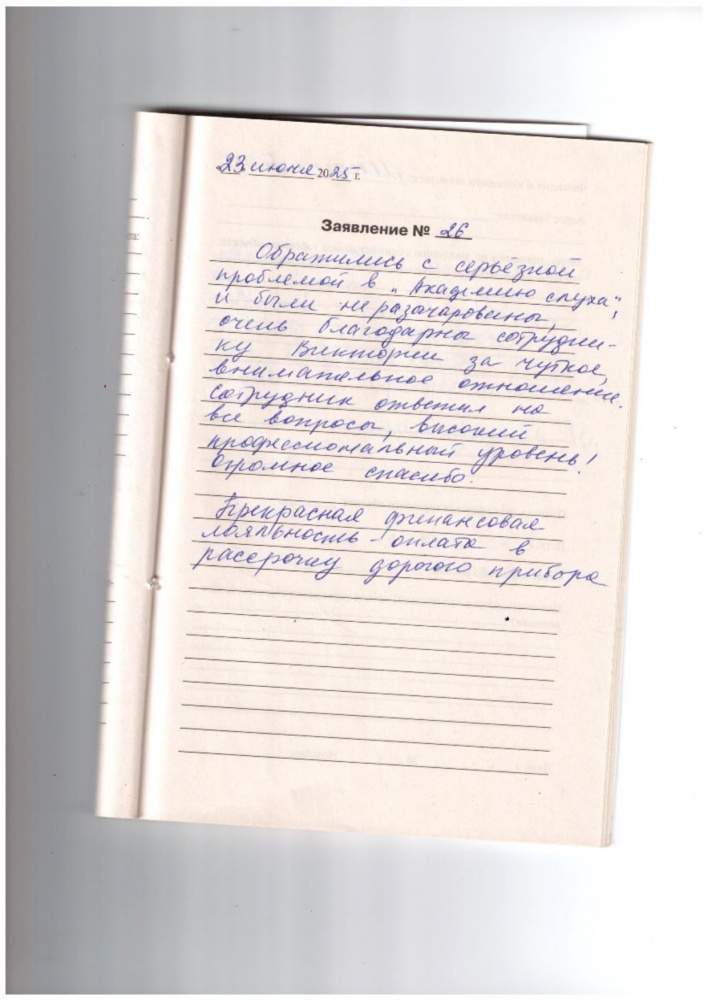 23 июня 2025 г.
Заявление № 26
Обратились с серьёзной
проблемой в „Академию слуха“,
и были не разачарованы,
очень благодарна сотрудни-
ку Виктории за чуткое,
внимательное отношение.
Сотрудник ответил на
все вопросы, высокий
профессиональный уровень!
Огромное спасибо.
Прекрасная финансовая
лояльность - оплата в
рассрочку дорогого прибора